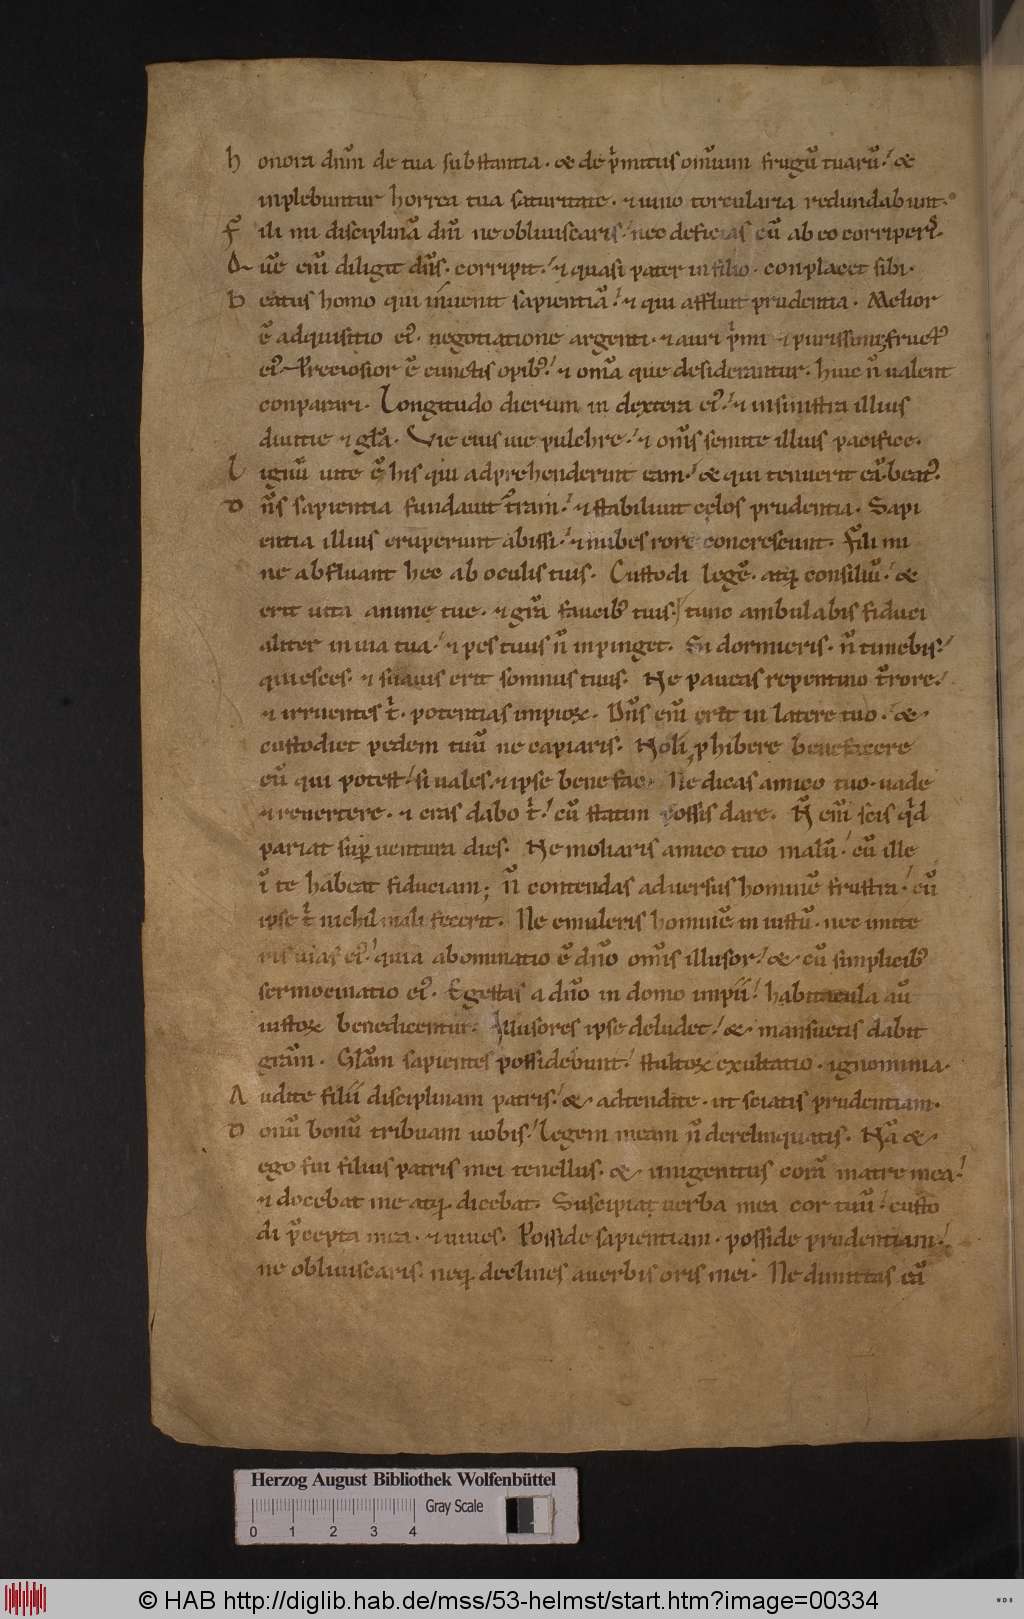 honora dnm̄ de tua substantia · & de pͥmitus om̄ium frugū tuarū / &
inplebuntur horrea tua saturitate · ⁊ uino torcularia redundabunt ·
Fili mi disciplinā dn̄i ne obliuiscaris / nec deficias cū ab eo corriperis ·
Quē eni̅ diligit dn̄s · corripit / ⁊ quasi pater in filio · conplacet sibi ·
Beatus homo qui inuenit sapientiā / ⁊ qui affluit prudentia · Melior
ē adquisitio eiꝰ · negotiatione argenti · ⁊ auri pͥmi ⁊ purissimi fructꝰ
eiꝰ · Preciosior ē cunctis opibꝰ / ⁊ om̄a que desiderantur · huic n̄ ualent
conparari · Longitudo dierum in dextera eiꝰ / ⁊ in sinistra illius
diuitie ⁊ gl̄a · Vie eius uie pulchre / ⁊ om̄s semite illius pacifice ·
Lignū uite ē his qui adprehenderint eam / & qui tenuerit eā beatꝰ ·
Dn̄s sapientia fundauit t̄ram / ⁊ stabiliuit cęlos prudentia · Sapi
entia illius eruperunt abissi / ⁊ nubes rore concrescunt · Fili mi
ne abfluant hec ab oculis tuis · Custodi legē · atq; consiliū / &
erit uita anime tue · ⁊ gr̄a faucibꝰ tuis · tunc ambulabis fiduci
aliter in uia tua / ⁊ pes tuus n̄ inpinget · Si dormieris · n̄ timebis /
quiesces · ⁊ suauis erit somnus tuus · Ne paueas repentino t̄rore /
⁊ irruentes t̄ · potentias impioꝝ · Dn̄s eni̅ erit in latere tuo · &
custodiet pedem tuū ne capiaris · Noli ꝓhibere benefacere
eū qui potest / si uales · ⁊ ipse bene fac · Ne dicas amico tuo · uade
⁊ reuertere · ⁊ cras dabo tͥ / cū statim possis dare · N̄ eni̅ scis qͥd
pariat suꝑuentura dies · Ne moliaris amico tuo malū / cū ille
ī te habeat fiduciam ; n̄ contendas aduersus hominē frustra / cū
ipse tͥ nichil mali fecerit · Ne emuleris hominē in iustū · nec imite
ris uias eiꝰ / quia abominatio ē dn̄o om̄is illusor / & cū simplicibꝰ
sermocinatio eiꝰ · Egestas a dn̄o in domo impii / habitacula aū
iustoꝝ benedicentur · Illusores ipse deludet / & mansuetis dabit
gr̄am · Gl̄am sapientes possidebunt / stultoꝝ exultatio · ignominia ·
Audite filii disciplinam patris / & adtendite · ut sciatis prudentiam ·
Donū bonū tribuam uobis / legem meam n̄ derelinquatis · Nā &
ego fui filius patris mei tenellus · & unigenitus corā matre mea /
⁊ docebat me atq; dicebat · Suscipiat uerba mea cor tuū / custo
di p̄cepta mea · ⁊ uiues · Posside sapientiam · posside prudentiam /
ne obliuiscaris · neq; declines a uerbis oris mei · Ne dimittas eā
Herzog August Bibliothek Wolfenbüttel
Gray Scale
0 1 2 3 4
© HAB http://diglib.hab.de/mss/53-helmst/start.htm?image=00334